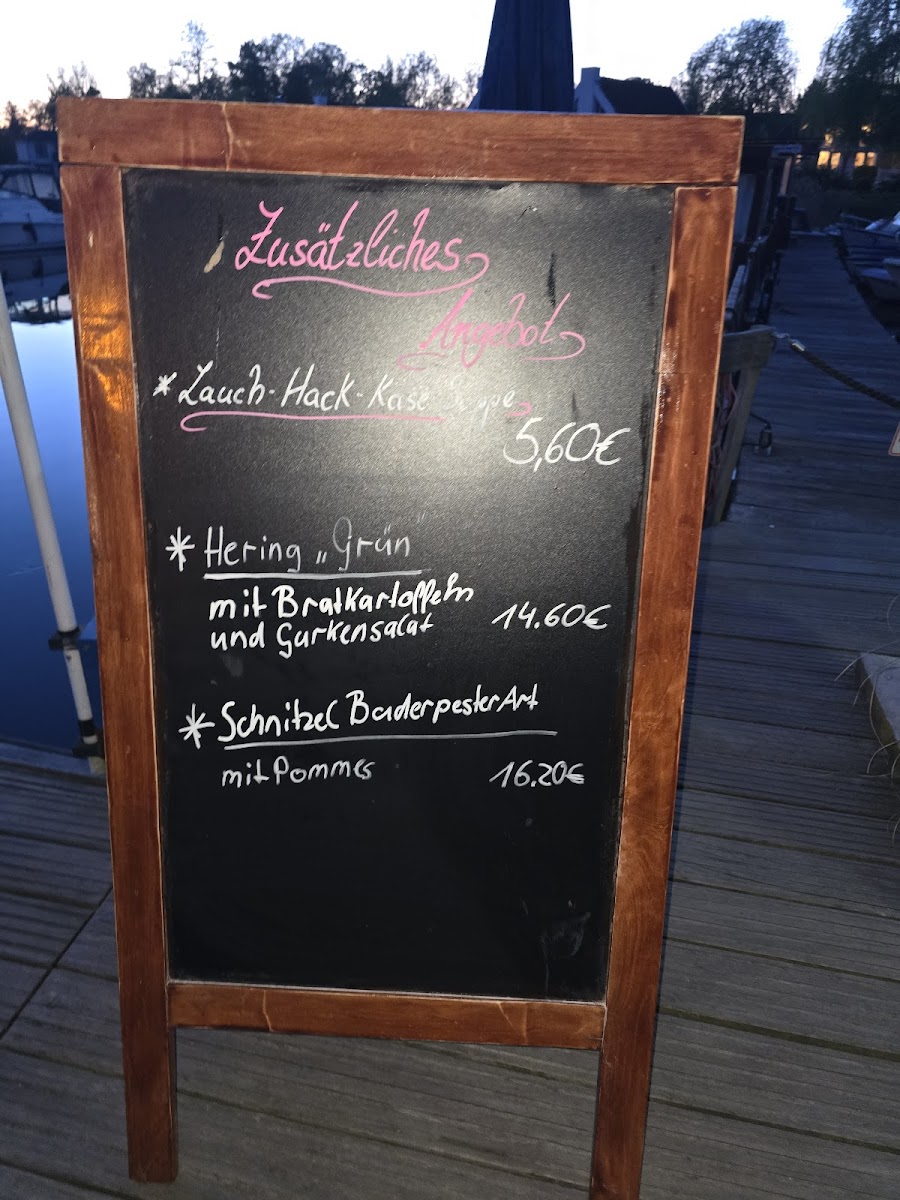 Zusätzliches
Angebot
* Lauch-Hack-Käse Suppe
5,60€
* Hering „Grün"
mit Bratkartoffeln
und Gurkensalat 14.60€
* Schnitzel Buderpester Art
mit Pommes 16.20€